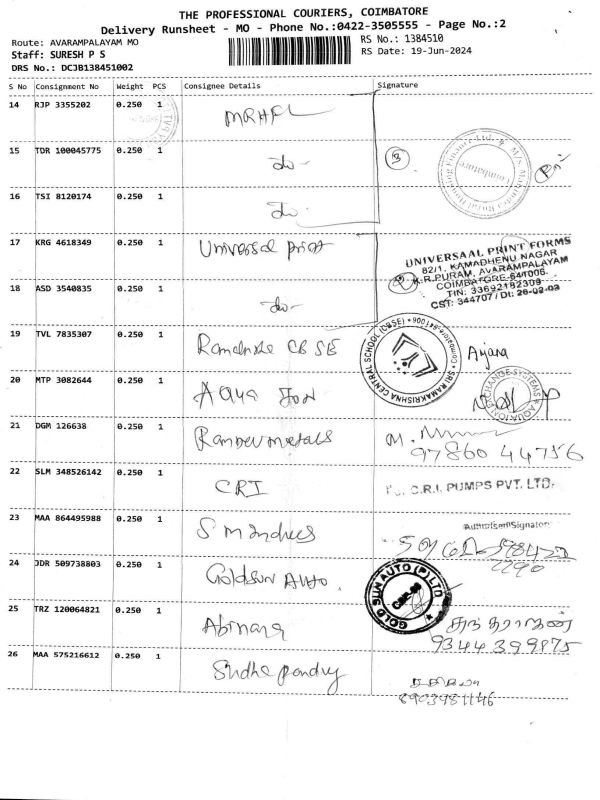 THE PROFESSIONAL COURIERS, COIMBATORE
Delivery Runsheet - MO - Phone No.:0422-3505555 - Page No.:2
Route: AVARAMPALAYAM MO
RS No.: 1384510
Staff: SURESH P S
RS Date: 19-Jun-2024
DRS No.: DCJB138451002
S No Consignment No Weight PCS Consignee Details Signature
14 RJP 3355202 0.250 1 MRHFL
15 TDR 100045775 0.250 1 do- 3
16 TSI 8120174 0.250 1 do-
17 KRG 4618349 0.250 1 Universal print
UNIVERSAAL PRINT FORMS
82/1, KAMADHENU NAGAR
K.R.PURAM, AVARAMPALAYAM
COIMBATORE-641006.
TIN: 33692182309
CST: 344707 / Dt: 26-02-03
18 ASD 3540835 0.250 1 do-
19 TVL 7835307 0.250 1 CBSE
SRI RAMAKRISHNA CENTRAL SCHOOL (CBSE) Coimbatore-641 006
20 MTP 3082644 0.250 1 Aqua
21 DGM 126638 0.250 1 Ramdev metals M.
97860 44756
22 SLM 348526142 0.250 1 CRI
C.R.I. PUMPS PVT. LTD.
Authorised Signatory
23 MAA 864495988 0.250 1
24 JDR 509738803 0.250 1 Goldsun Auto.
GOLD SUN AUTO (P) LTD
25 TRZ 120064821 0.250 1
9344399875
26 MAA 575216612 0.250 1
8903981146